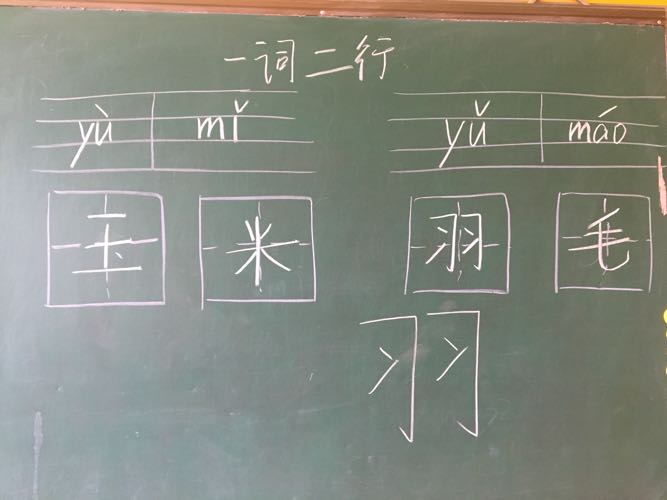 一词二行
yù mǐ yǔ máo
玉米 羽毛
羽